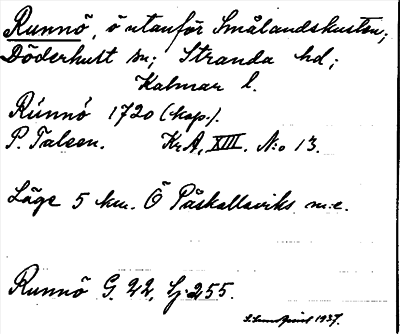 Runnö, ö utanför Smålandskusten;
Döderhult sn; Stranda hd;
Kalmar l.
Rúnnó 1720 (kop.).
P. Talsen. KrA, XIII. N:o 13.
Läge 5 km. Ö Påskallaviks m:e.
Runnö G. 22, bj: 255.
1937.